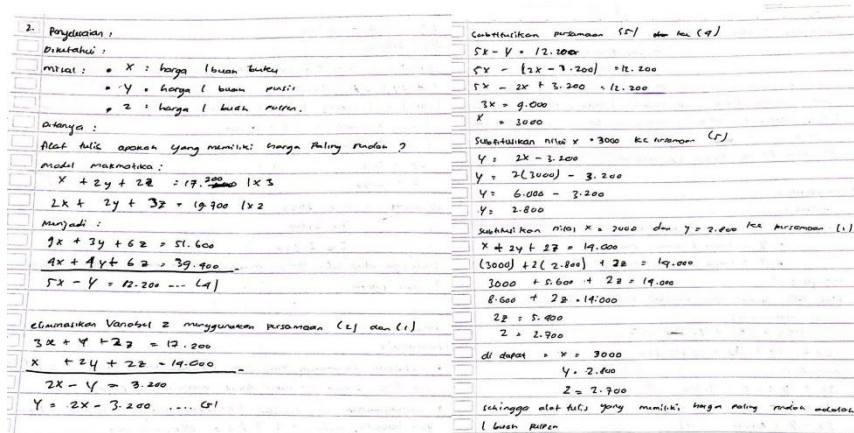 2. Penyelesaian :
Diketahui :
misal : • X : harga 1 buah buku
• Y : harga 1 buah pensil
• Z : harga 1 buah pulpen.
Ditanya :
Alat tulis apakah yang memiliki harga Paling rendah ?
model matematika :
x + 2y + 2z = 17.200 | x 3
2x + 2y + 3z = 19.700 | x 2
menjadi :
9x + 3y + 6z = 51.600
4x + 4y + 6z = 39.400 -
5x - y = 12.200 ... (4)
eliminasikan Variabel z menggunakan persamaan (2) dan (1)
3x + y + 2z = 17.200
x + 2y + 2z = 14.000 -
2x - y = 3.200
Y = 2x - 3.200 .... (5)
Substitusikan persamaan (5) ke (4)
5x - y = 12.200
5x - (2x - 3.200) = 12.200
5x - 2x + 3.200 = 12.200
3x = 9.000
x = 3000
Substitusikan nilai x = 3000 ke persamaan (5)
Y = 2x - 3.200
Y = 2(3000) - 3.200
Y = 6.000 - 3.200
Y = 2.800
Substitusikan nilai x = 3000 dan y = 2.800 ke persamaan (1)
x + 2y + 2z = 14.000
(3000) + 2(2.800) + 2z = 14.000
3000 + 5.600 + 2z = 14.000
8.600 + 2z = 14.000
2z = 5.400
z = 2.700
di dapat = x = 3000
Y = 2.800
Z = 2.700
sehingga alat tulis yang memiliki harga paling rendah adalah
1 buah pulpen